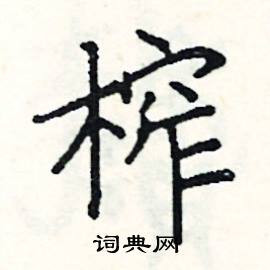 榨
词典网